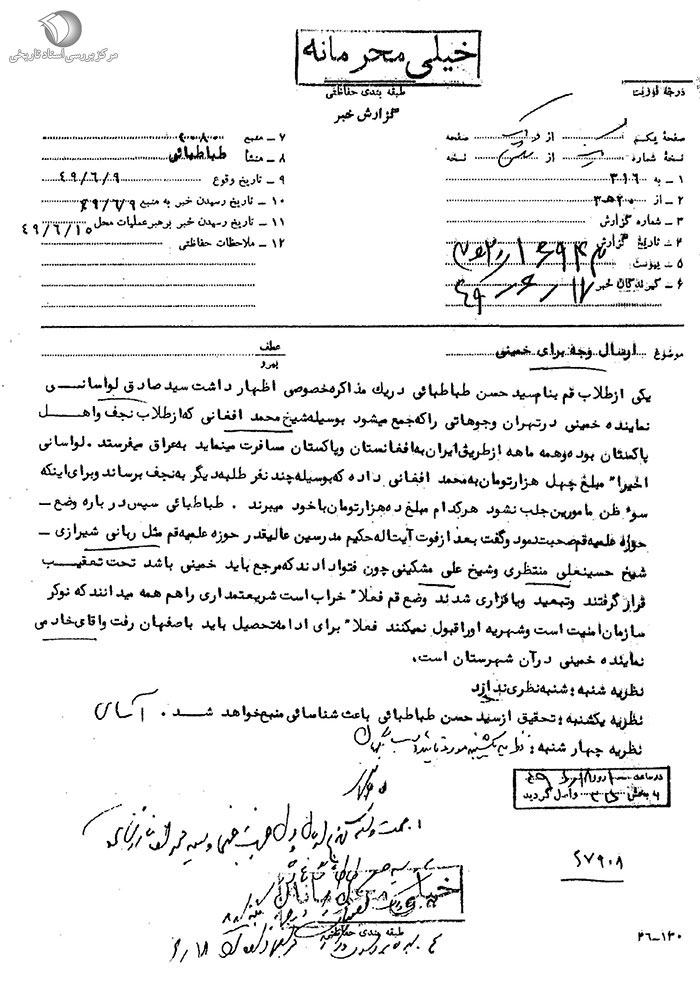 مرکز بررسی اسناد تاریخی
خیلی محرمانه
طبقه بندی حفاظتی
گزارش خبر
درجه فوریت
صفحه یکم از صفحه
نسخه شماره از نسخه
۱ ـ به ۳۱۶
۲ ـ از ۲۰ه۳
۳ ـ شماره گزارش
۴ ـ تاریخ گزارش
۵ ـ پیوست
۶ ـ گیرندگان خبر
۷ ـ منبع ۴۰۸۰
۸ ـ منشأ طباطبائی
۹ ـ تاریخ وقوع ۴۹/۶/۹
۱۰ ـ تاریخ رسیدن خبر به منبع ۴۹/۶/۹
۱۱ ـ تاریخ رسیدن خبر برهبر عملیات محل ۴۹/۶/۱۵
۱۲ ـ ملاحظات حفاظتی
موضوع ارسال وجه برای خمینی
عطف
پیرو
یکی ازطلاب قم بنام سید حسن طباطبائی دریك مذاکره خصوصی اظهار داشت سید صادق لواسانـــی
نماینده خمینی درتهران وجوهاتی راکه جمع میشود بوسیله شیخ محمد افغانی که ازطلاب نجف واهـــل
پاکستان بوده وهمه ماهه ازطریق ایران به افغانستان وپاکستان مسافرت مینماید به عراق میفرستد . لواسانی
اخیرا" مبلغ چهل هزارتومان به محمد افغانی داده که بوسیله چند نفر طلبه دیگر به نجف برساند وبرای اینکه
سوء ظن مامورین جلب نشود هرکدام مبلغ ده هزارتومان باخود میبرند . طباطبائی سپس درباره وضع ـ
حوزه علمیه قم صحبت نمود وگفت بعد ازفوت آیت اله حکیم مدرسین عالیقدر حوزه علمیه قم مثل ربانی شیرازی ـ
شیخ حسینعلی منتظری وشیخ علی مشکینی چون فتوا دادند که مرجع باید خمینی باشد تحت تعقیـــب
قرار گرفتند وتبعید ویا فراری شدند وضع قم فعلا" خراب است شریعتمداری را هم همه میدانند که نوکر
سازمان امنیت است وشهریه اوراقبول نمیکنند فعلا" برای ادامه تحصیل باید باصفهان رفت واقای خادمی
نماینده خمینی درآن شهرستان است.
نظریه شنبه : شنبه نظری ندارد
نظریه یکشنبه : تحقیق ازسید حسن طباطبائی باعث شناسائی منبع خواهد شـــد .
نظریه چهار شنبه :
در ساعت روز
به بخش واصل گردید
۲۷۹۰۸
خیلی محرمانه
طبقه بندی حفاظتی
۲۶-۱۳۰